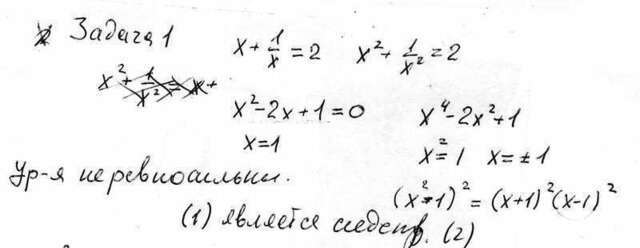 Задача 1
x + 1/x = 2 x² + 1/x² = 2
x² - 2x + 1 = 0 x⁴ - 2x² + 1
x = 1 x² = 1 x = ±1
Ур-я неравносильны.
(x² - 1)² = (x+1)²(x-1)²
(1) является следств. (2)